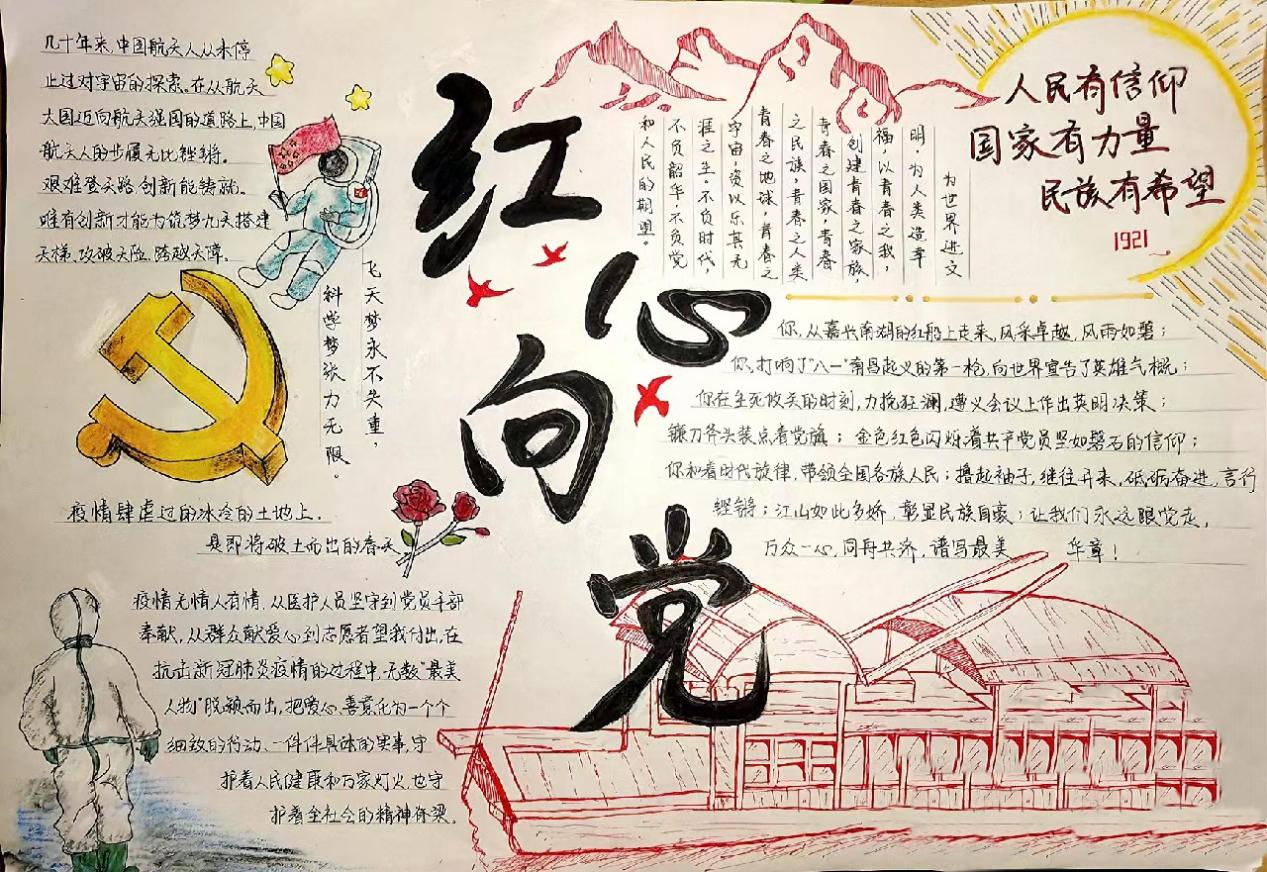 几十年来,中国航天人从未停
止过对宇宙的探索。在从航天
大国迈向航天强国的道路上,中国
航天人的步履无比铿锵。
艰难登天路,创新能铸就。
唯有创新才能为筑梦九天搭建
天梯、攻破天险、跨越天障。
飞天梦永不失重,
科学梦张力无限。
红心向党
为世界进文
明,为人类造幸
福,以青春之我,
创建青春之家族,
青春之国家,青春
之民族,青春之人类
青春之地球,青春之
宇宙,资以乐其无
涯之生。不负时代,
不负韶华,不负党
和人民的期望。
人民有信仰
国家有力量
民族有希望
1921
你,从嘉兴南湖的红船上走来,风采卓越,风雨如磐;
你,打响了"八一"南昌起义的第一枪,向世界宣告了英雄气概;
你在生死攸关的时刻,力挽狂澜,遵义会议上作出英明决策;
镰刀斧头装点着党旗;金色红色闪烁着共产党员坚如磐石的信仰;
你和着时代旋律,带领全国各族人民;撸起袖子,继往开来,砥砺奋进,言行
铿锵;江山如此多娇,彰显民族自豪;让我们永远跟党走,
万众一心,同舟共济,谱写最美 华章!
疫情肆虐过的冰冷的土地上,
是即将破土而出的春天
疫情无情人有情,从医护人员坚守到党员干部
奉献,从群众献爱心到志愿者望我付出,在
抗击新冠肺炎疫情的过程中,无数"最美
人物"脱颖而出,把爱心、善意化为一个个
细致的行动、一件件具体的实事,守
护着人民健康和万家灯火,也守
护着全社会的精神脊梁。